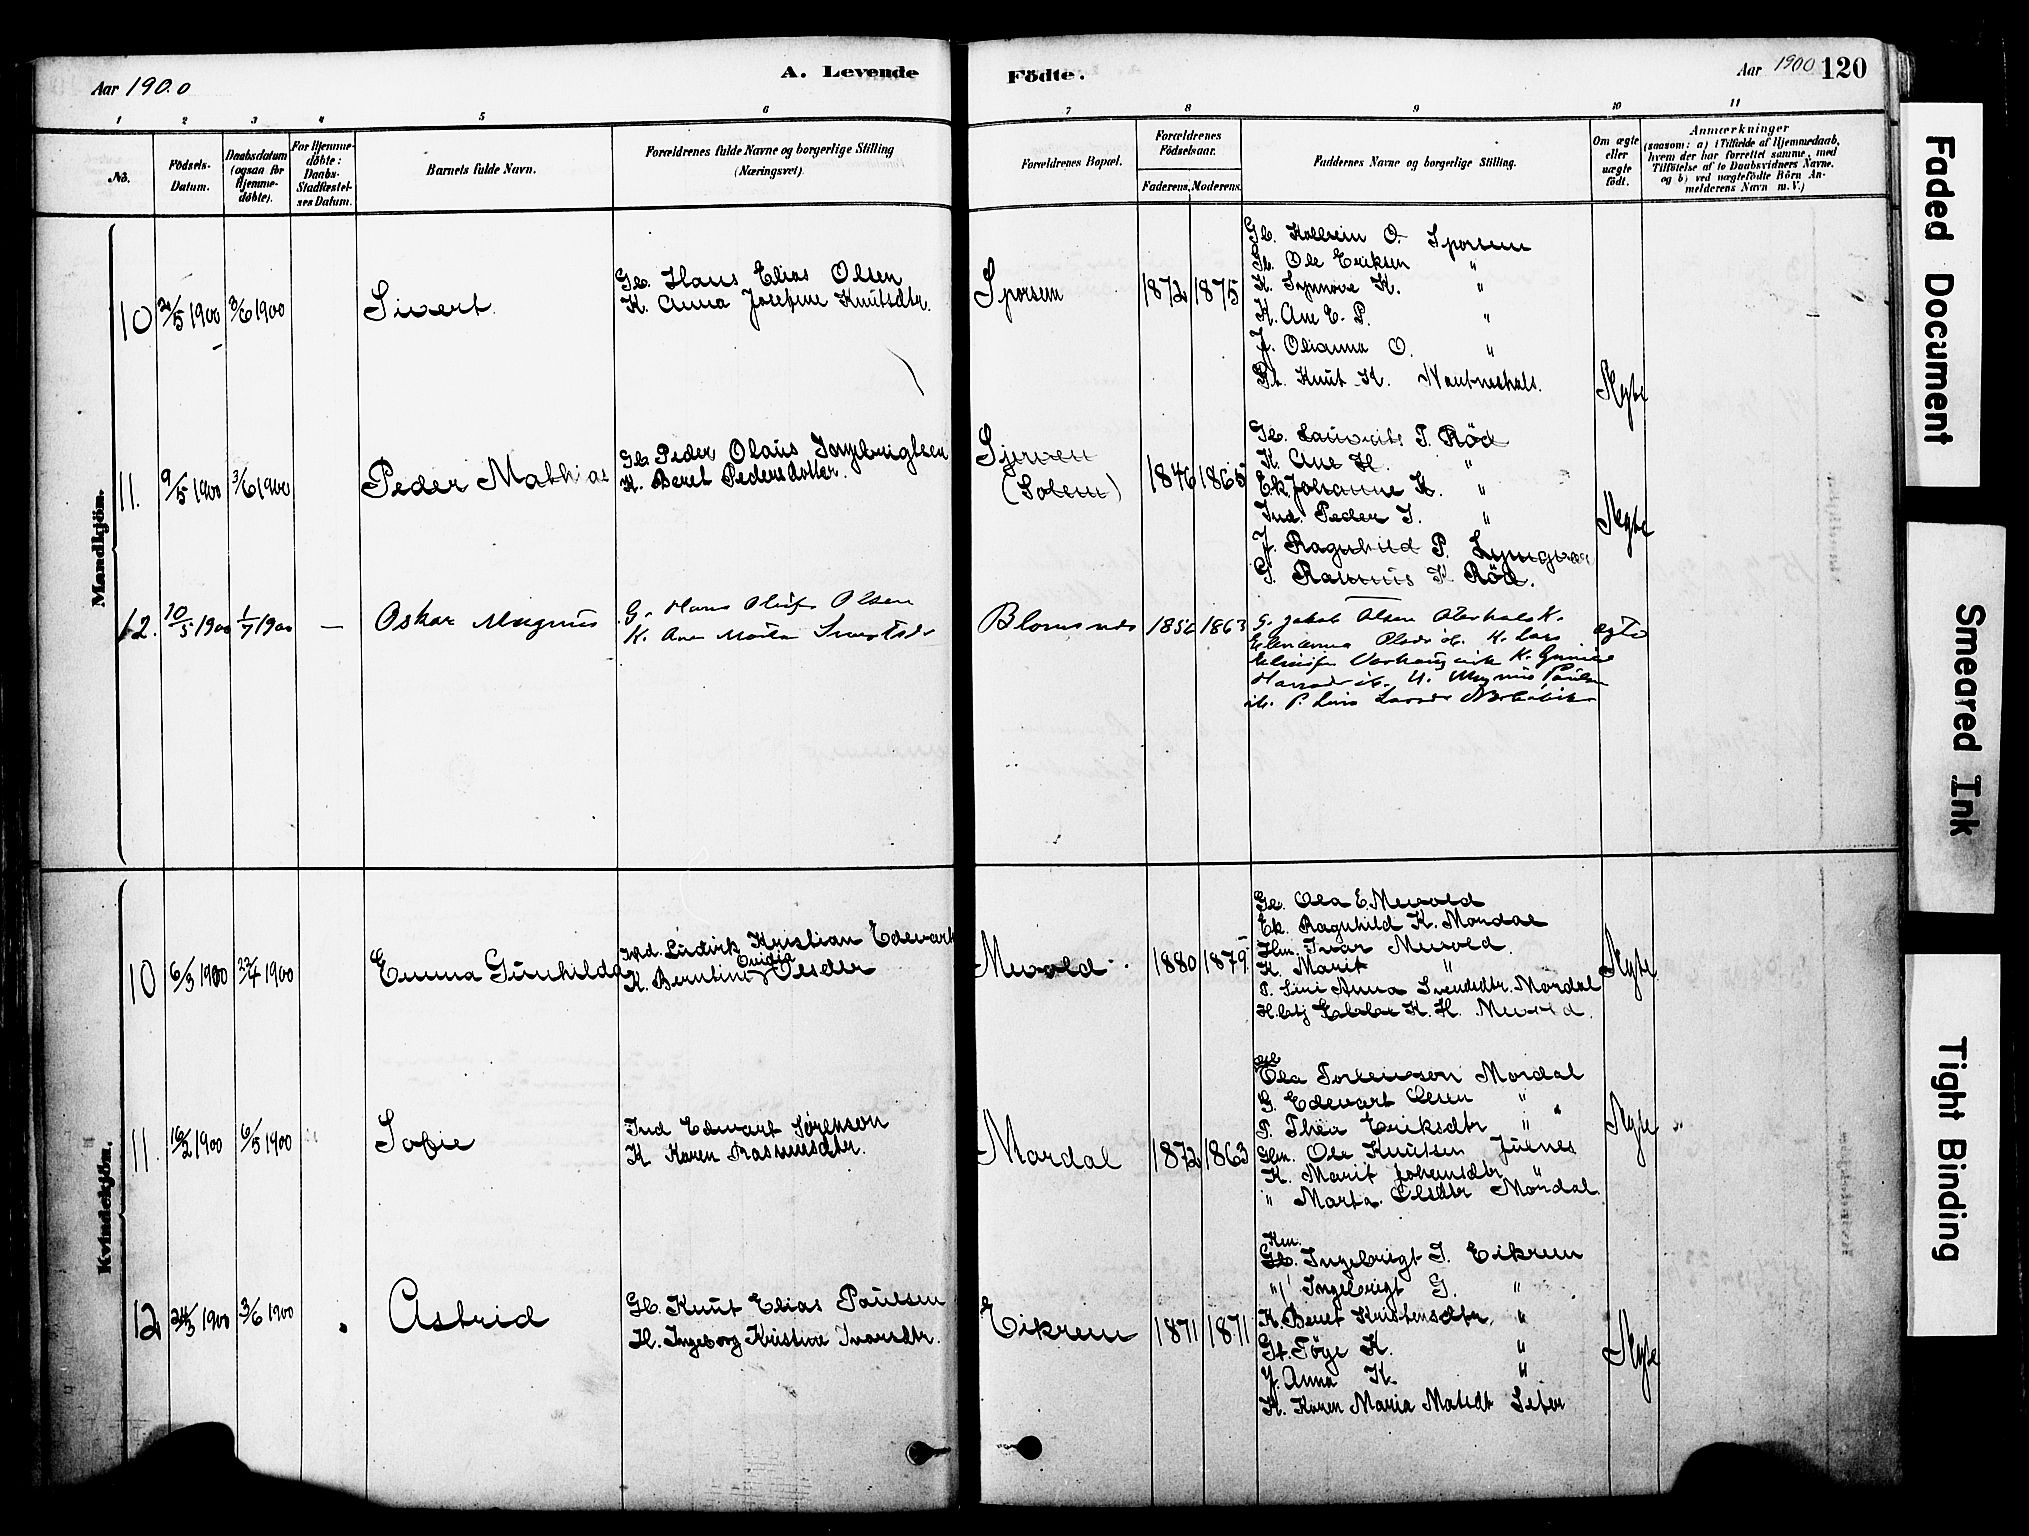 Aar 1900
A. Levende
Födte.
Aar 1900 120
1 2 3 4 5 6 7 8 9 10 11
No.
Födsels-Datum.
Daabsdatum (ogsaa for Hjemme-døbte).
For Hjemme-døbte: Daabs-Stadfæstel-ses Datum.
Barnets fulde Navn.
Forældrenes fulde Navne og borgerlige Stilling
(Næringsvei).
Forældrenes Bopæl.
Forældrenes Födselsaar.
Faderens. Moderens.
Faddernes Navne og borgerlige Stilling.
Om ægte eller uægte født.
Anmærkninger
(saasom: a) i Tilfælde af Hjemmedaab,
hvem der har forrettet samme, med
Tilføielse af to Daabsvidners Navne.
og b) ved uægtefødte Börn An-
melderens Navn m. V.)
Mandkjön.
10 /5 1900 3/6 1900 Sivert.
Gb. Hans Elias Olsen
K. Anna Josefine Knutsdtr.
Sporsem 1872 1875
Gb. Kolbein O. Sporsem
Ole Eriksen "
K. Synnøve K. "
K. Ane E. P. "
J. Olianna O. "
Knut K.
Ægte
11. 9/5 1900 3/6 1900 Peder Mathias
Gb. Peder Olaus Ingebrigtsen
K. Beret Pedersdatter.
(Solem) 1846 1865
Gb. Lauvrits P. Röd
K. Ane H. "
Ek. Johanne K. "
Ind. Peder J. "
J. Ragnhild P. Lyngvær
G. Rasmus K. Röd.
Ægte
12. 10/5 1900 1/7 1900 — Oskar Magnus
G. Hans Oluf Olsen
K. Ane Marta
1863
G. Jakob Olsen
K. Lars
Magnus Paulsen
ægte
Kvindekjön.
10 6/3 1900 1900 Emma Gunhilda
Ind. Ludvik Kristian Edevart
K. Berntine Ovidia Olesdtr
Mevold 1880 1879
Gb. Ola E. Mevold
Ek. Ragnhild K. Mordal
Ivar Mevold.
K. Marit "
P. Lini Anna Svendsdtr. Mordal
K. H. Mevold.
Ægte
11. 16/2 1900 6/5 1900 Sofie
Ind Edvart Sörenson
K Karen Rasmusdtr.
Mordal 1872 1863
Ola Torsteinson Mordal
G. Edevart Olsen "
P. Thea Eriksdtr "
Ole Knutsen Julnes
K. Marit Johansdtr "
" Marta Olsdtr Mordal
Ægte "
12 24/3 1900 3/6 1900 Astrid
Gb. Knut Elias Paulsen
H. Ingeborg Kristine Ivarsdtr.
Eikrem 1871 1871
Km.
Gb. Ingebrigt I. Eikrem
" Ingebrigt G. "
K. Beret Kristensdtr. "
Töge K. "
J. Anna K. "
K. Karen Maria Matsdtr Seter
Ægte
Faded Document
Smeared Ink
Tight Binding